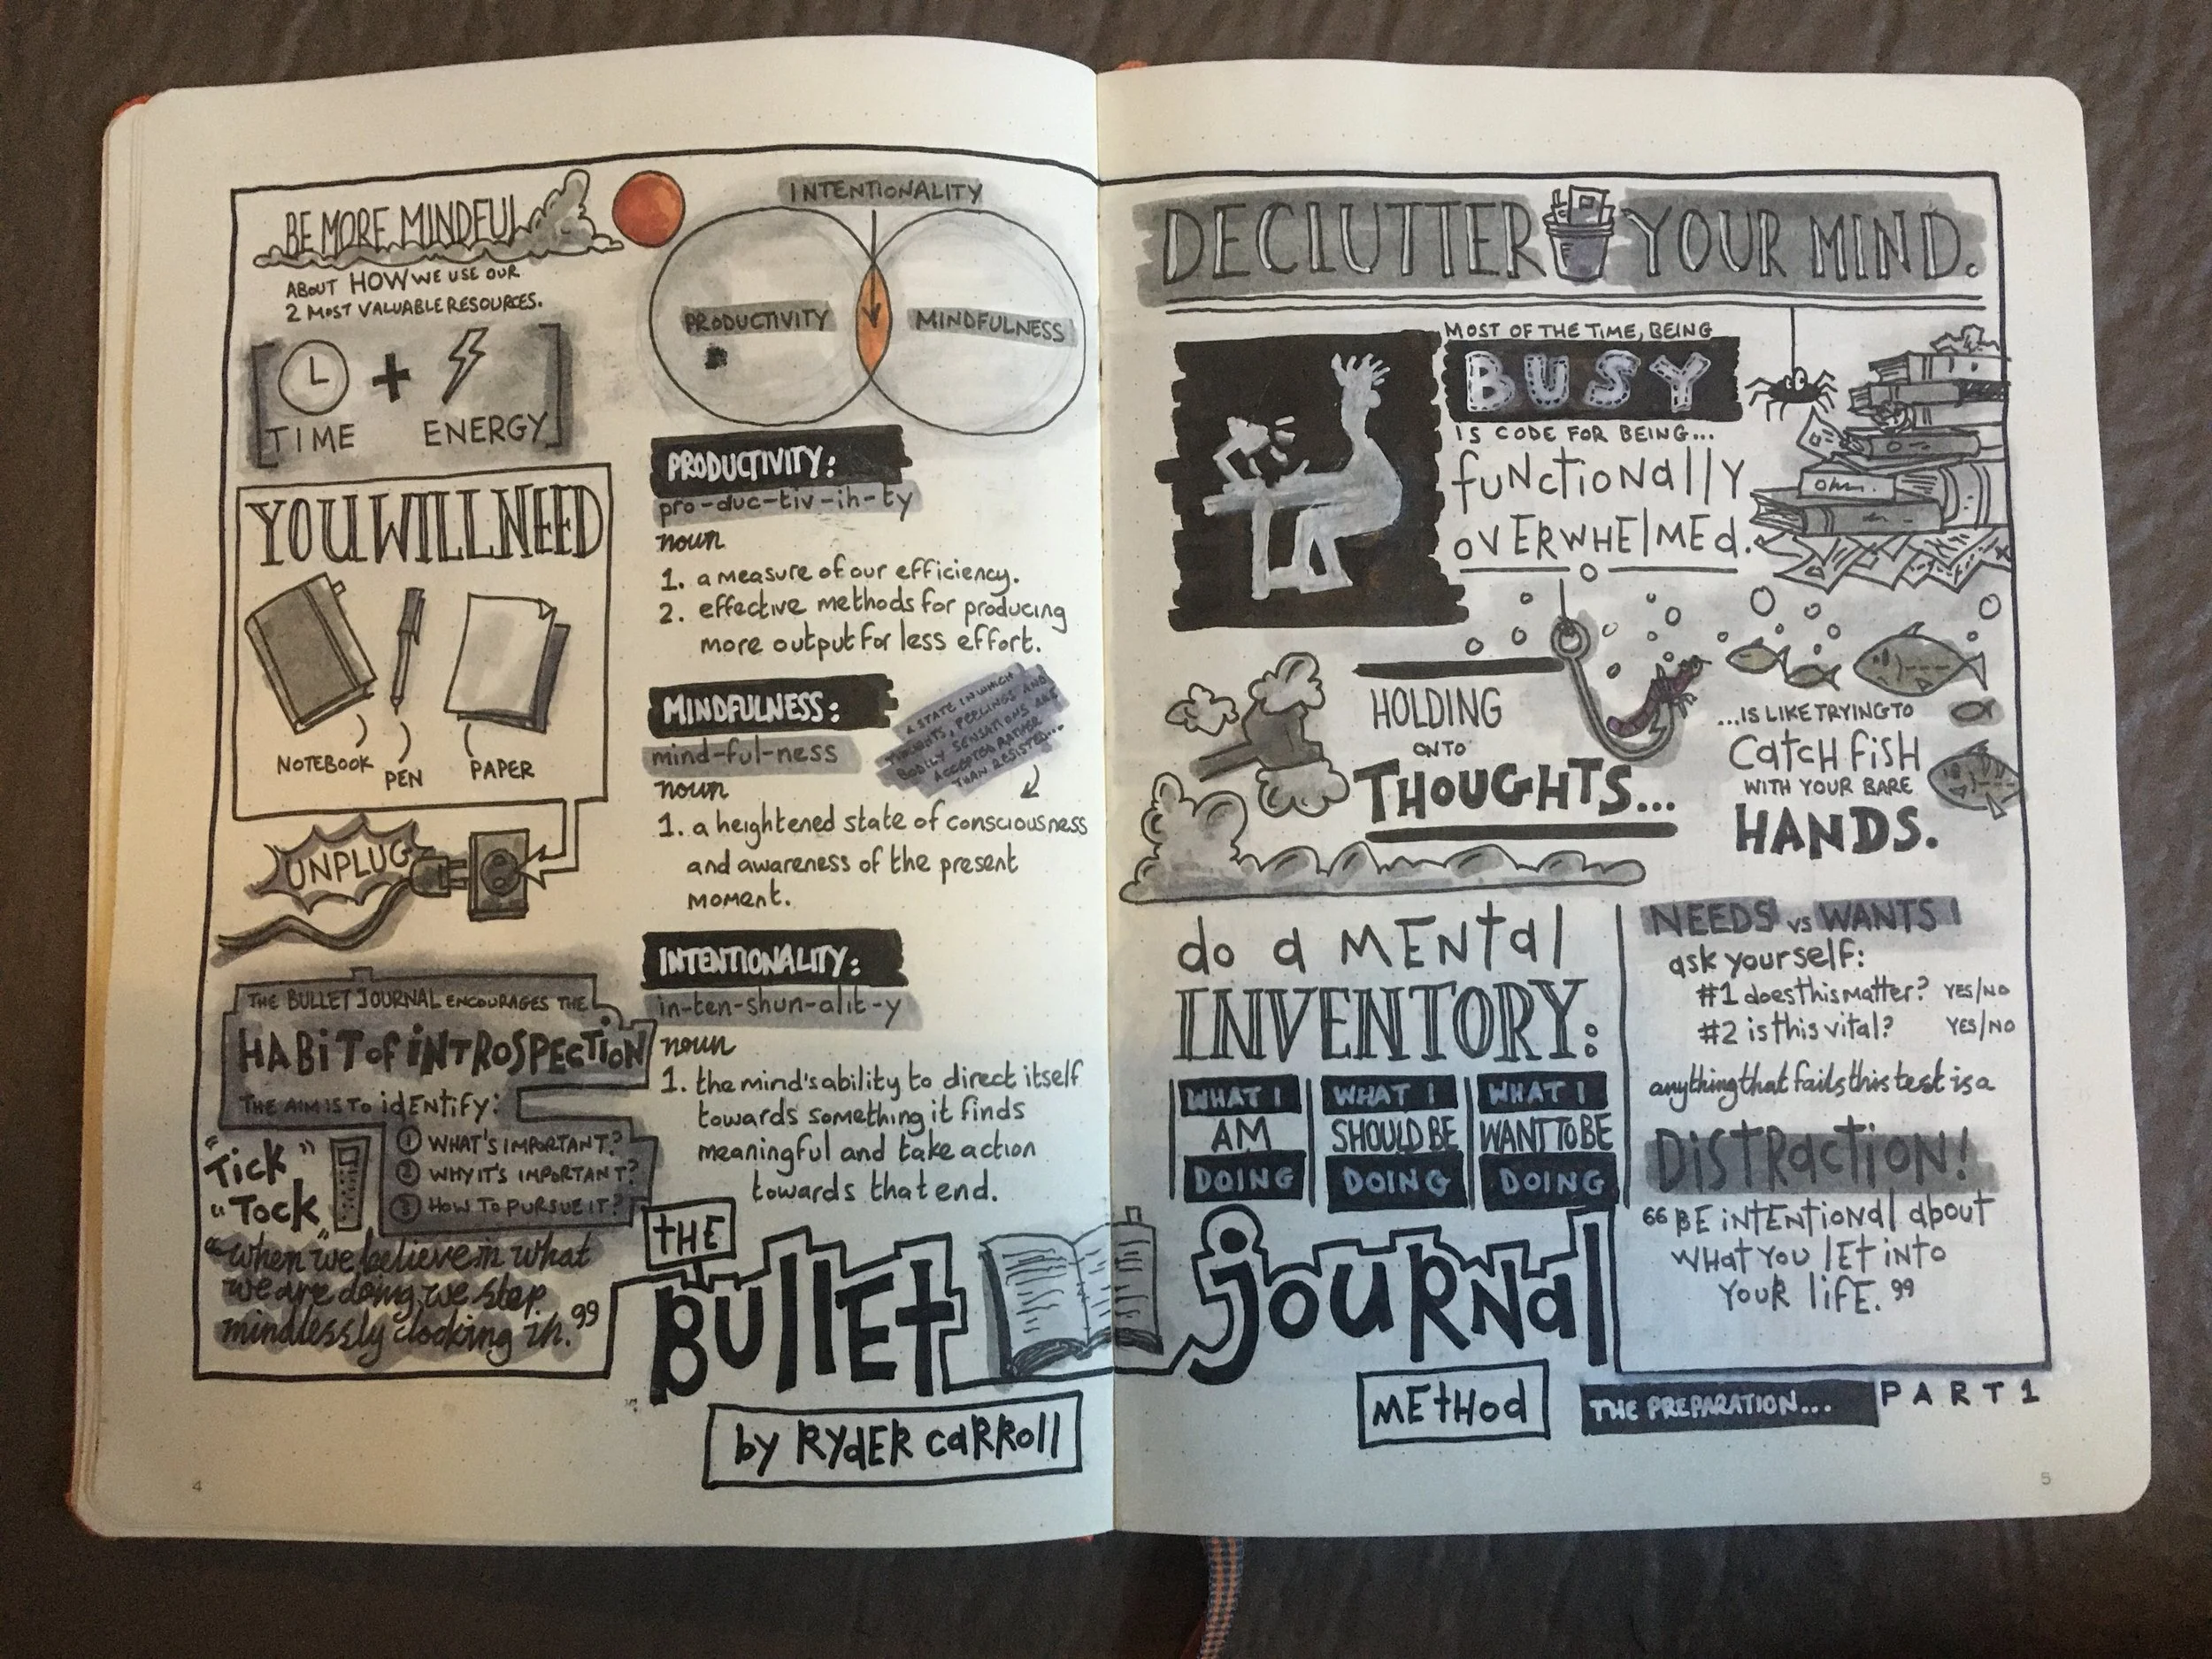 BE MORE MINDFUL
ABOUT HOW WE USE OUR
2 MOST VALUABLE RESOURCES.
TIME + ENERGY
YOU WILL NEED
NOTEBOOK
PEN
PAPER
UNPLUG
THE BULLET JOURNAL ENCOURAGES THE
HABIT OF INTROSPECTION
THE AIM IS TO IDENTIFY:
1 WHAT'S IMPORTANT?
2 WHY IT'S IMPORTANT?
3 HOW TO PURSUE IT?
"Tick"
"Tock"
"when we believe in what
we are doing, we stop
mindlessly clocking in."
INTENTIONALITY
PRODUCTIVITY
MINDFULNESS
PRODUCTIVITY:
pro-duc-tiv-ih-ty
noun
1. a measure of our efficiency.
2. effective methods for producing
more output for less effort.
MINDFULNESS:
mind-ful-ness
noun
A STATE IN WHICH
THOUGHTS, FEELINGS AND
BODILY SENSATIONS ARE
ACCEPTED RATHER
THAN RESISTED...
1. a heightened state of consciousness
and awareness of the present
moment.
INTENTIONALITY:
in-ten-shun-alit-y
noun
1. the mind's ability to direct itself
towards something it finds
meaningful and take action
towards that end.
THE
BULLET
by RYDER CARROLL
DECLUTTER YOUR MIND.
MOST OF THE TIME, BEING
BUSY
IS CODE FOR BEING...
functionally
OVERWHELMED.
Ohm.
HOLDING
ONTO
THOUGHTS...
...IS LIKE TRYING TO
CATCH FISH
WITH YOUR BARE
HANDS.
do a MENtal
INVENTORY:
WHAT I
AM
DOING
WHAT I
SHOULD BE
DOING
WHAT I
WANT TO BE
DOING
NEEDS vs WANTS!
ask yourself:
#1 does this matter? YES/NO
#2 is this vital? YES/NO
anything that fails this test is a
DISTRACTION!
"BE INTENTIONAL about
WHAT YOU LET INTO
YOUR LIFE."
JOURNAL
METHOD
THE PREPARATION... PART 1
4
5